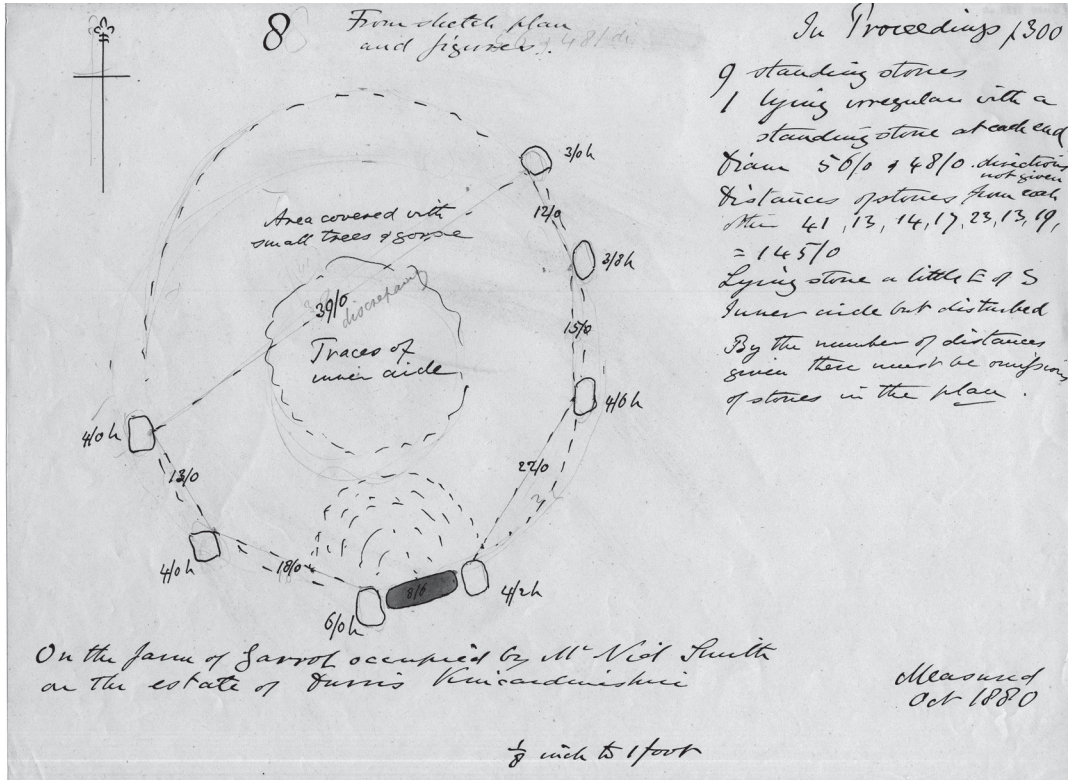 8
From sketch plan
and figures.
In Proceedings p300
9 standing stones
1 lying irregular with a
standing stone at each end
Diam 56/0 & 48/0 . directions
not given
Distances of stones from each
other 41, 13, 14, 17, 23, 13, 19,
= 145/0
Lying stone a little E of S
Inner circle but disturbed
By the number of distances
given there must be omissions
of stones in the plan.
3/0 h
12/0
Area covered with
small trees & gorse
3/8 h
39/0
discrepancy
15/0
Traces of
inner circle
4/6 h
4/0 h
13/0
22/0
4/0 h
18/0
8/6
4/2 h
6/0 h
On the farm of Garrol occupied by Mr Niel Smith
on the estate of Durris Kincardineshire
Measured
Oct 1880
1/8 inch to 1 foot